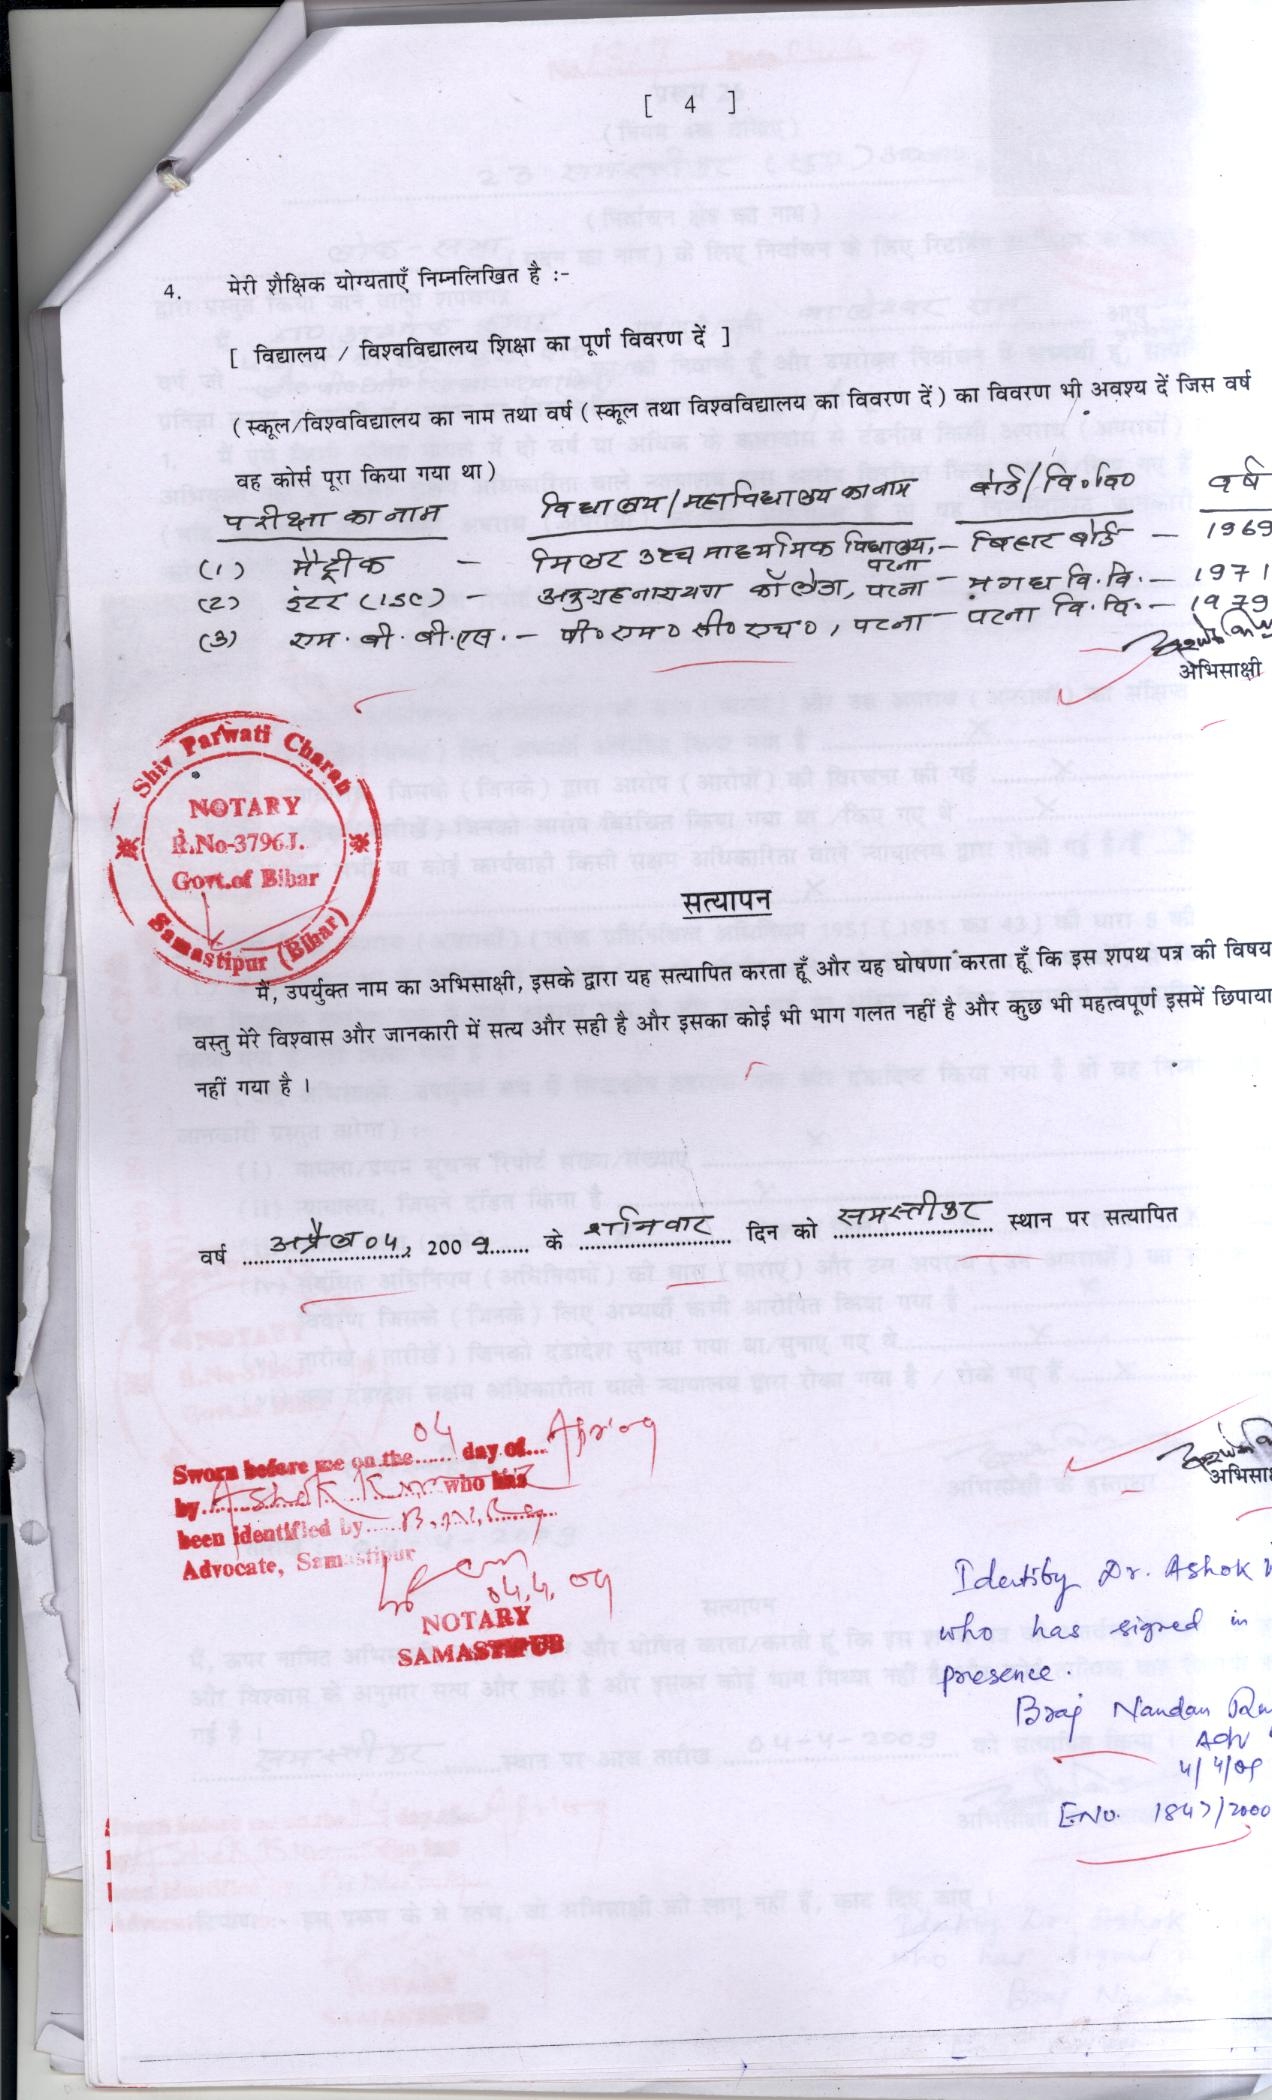 [ 4 ]
4. मेरी शैक्षिक योग्यताएँ निम्नलिखित है :-
[ विद्यालय / विश्वविद्यालय शिक्षा का पूर्ण विवरण दें ]
( स्कूल/विश्वविद्यालय का नाम तथा वर्ष ( स्कूल तथा विश्वविद्यालय का विवरण दें ) का विवरण भी अवश्य दें जिस वर्ष
वह कोर्स पूरा किया गया था )
परीक्षा का नाम विद्यालय/महाविद्यालय का नाम बोर्ड/वि०वि० वर्ष
(1) मैट्रीक - मिलर उच्च माध्यमिक विद्यालय, पटना - बिहार बोर्ड - 1969
(2) इंटर (ISC) - अनुग्रह नारायण कॉलेज, पटना - मगध वि.वि. - 1971
(3) एम.बी.बी.एस. - पी०एम०सी०एच०, पटना - पटना वि.वि. - 1979
अभिसाक्षी
Shiv Parwati Charan
NOTARY
R.No-3796J.
Govt.of Bihar
Samastipur (Bihar)
सत्यापन
मैं, उपर्युक्त नाम का अभिसाक्षी, इसके द्वारा यह सत्यापित करता हूँ और यह घोषणा करता हूँ कि इस शपथ पत्र की विषय
वस्तु मेरे विश्वास और जानकारी में सत्य और सही है और इसका कोई भी भाग गलत नहीं है और कुछ भी महत्वपूर्ण इसमें छिपाया
नहीं गया है ।
वर्ष अप्रैल 04, 2009 के शनिवार दिन को समस्तीपुर स्थान पर सत्यापित
Sworn before me on the 04 day of
by Ashok Kumar who has
been identified by
Advocate, Samastipur
04.4.09
NOTARY
SAMASTIPUR
Identify Dr. Ashok
who has signed in
presence.
Braj Nandan
Adv
4/4/09
E.No. 1847/2000